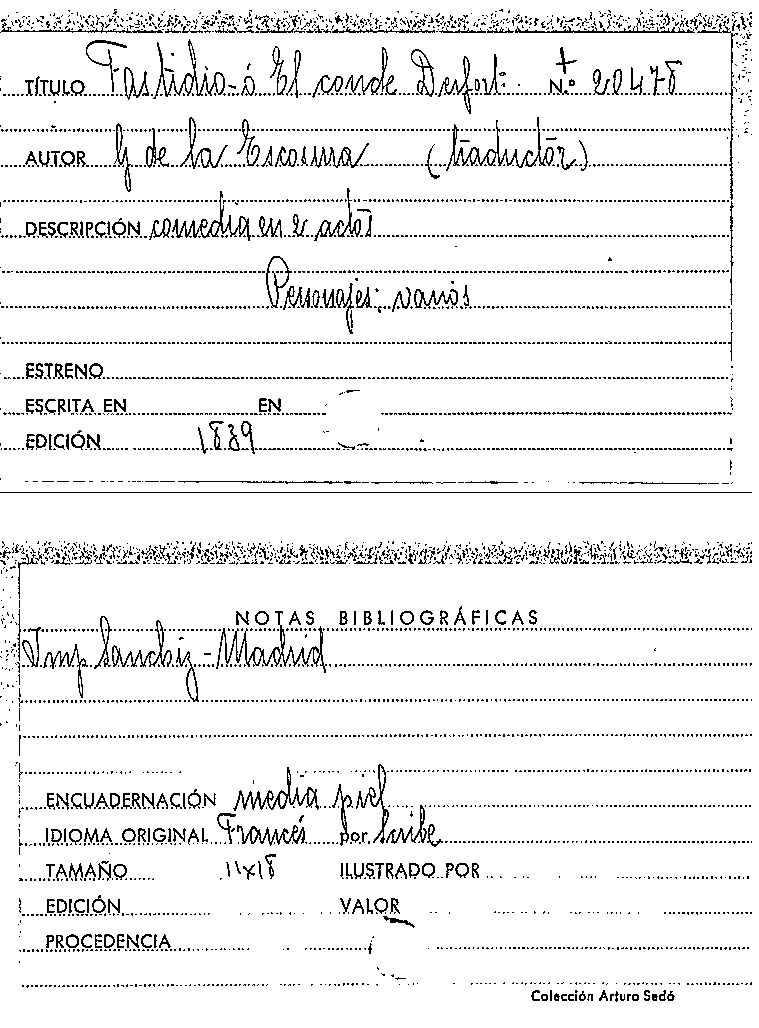 TÍTULO Fastidio-ó El conde Derfort: N.º 20478
AUTOR G de la Escosura (traductor)
DESCRIPCIÓN comedia en 2 actos
Personajes: varios
ESTRENO
ESCRITA EN EN
EDICIÓN 1839
NOTAS BIBLIOGRÁFICAS
Imp Sanchiz - Madrid
ENCUADERNACIÓN media piel
IDIOMA ORIGINAL Francés por Scribe
TAMAÑO 11x18 ILUSTRADO POR
EDICIÓN VALOR
PROCEDENCIA
Colección Arturo Sedó